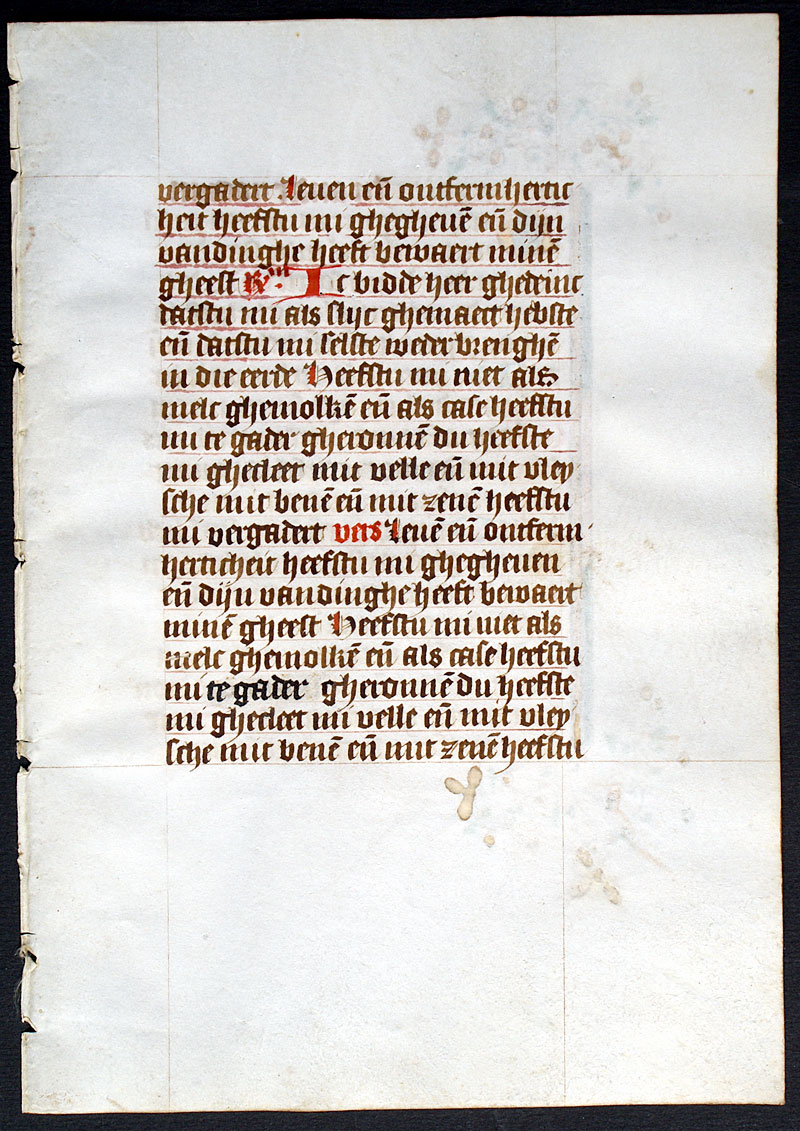 vergadert Leuen eñ ontfermhertic
heit heefstu mi ghegheuē eñ dijn
vandinghe heeft bewaert minē
gheest Ic bidde heer ghedenct
datstu mi als slijc ghemaect hebste
eñ datstu mi selste weder brenghē
in die eerde Heefstu mi niet als
melc ghemolkē eñ als case heefstu
mi te gader gheronnē du heefste
mi ghecleet mit velle eñ mit vley
sche mit benē eñ mit zenē heefstu
mi vergadert vers Leuē eñ ontferm
herticheit heefstu mi ghegheuen
eñ dijn vandinghe heeft bewaert
minē gheest Heefstu mi niet als
melc ghemolkē eñ als case heefstu
mi te gader gheronnē du heefste
mi ghecleet mi velle eñ mit vley
sche mit benē eñ mit zenē heefstu